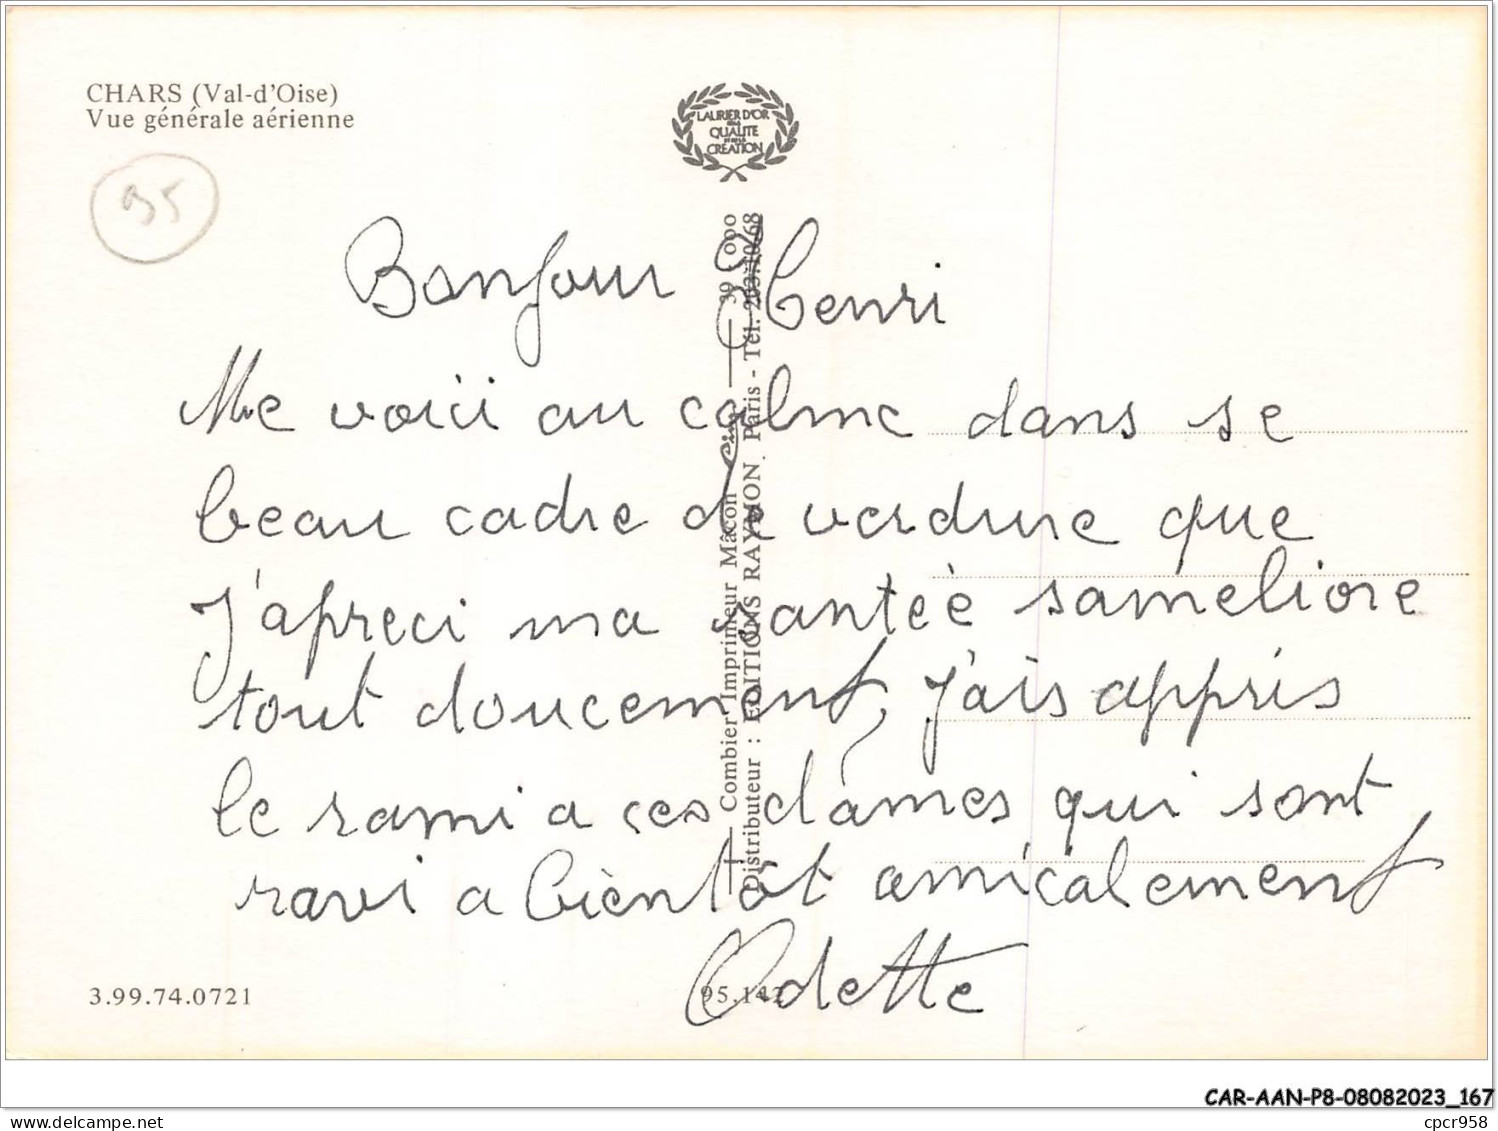 CHARS (Val-d'Oise)
Vue générale aérienne
LAURIER D'OR
QUALITE
CREATION
95
Bonjour Henri
Me voici au calme dans se
beau cadre de verdure que
J'apreci ma santèè sameliore
tout doucement, j'ais appris
le rami a ces dames qui sont
ravi a bientôt amicalement
Odette
Combier Imprimeur Mâcon
Distributeur : EDITIONS RAYMON, Paris - Tél.
3.99.74.0721
CAR-AAN-P8-08082023_167
cpcr958